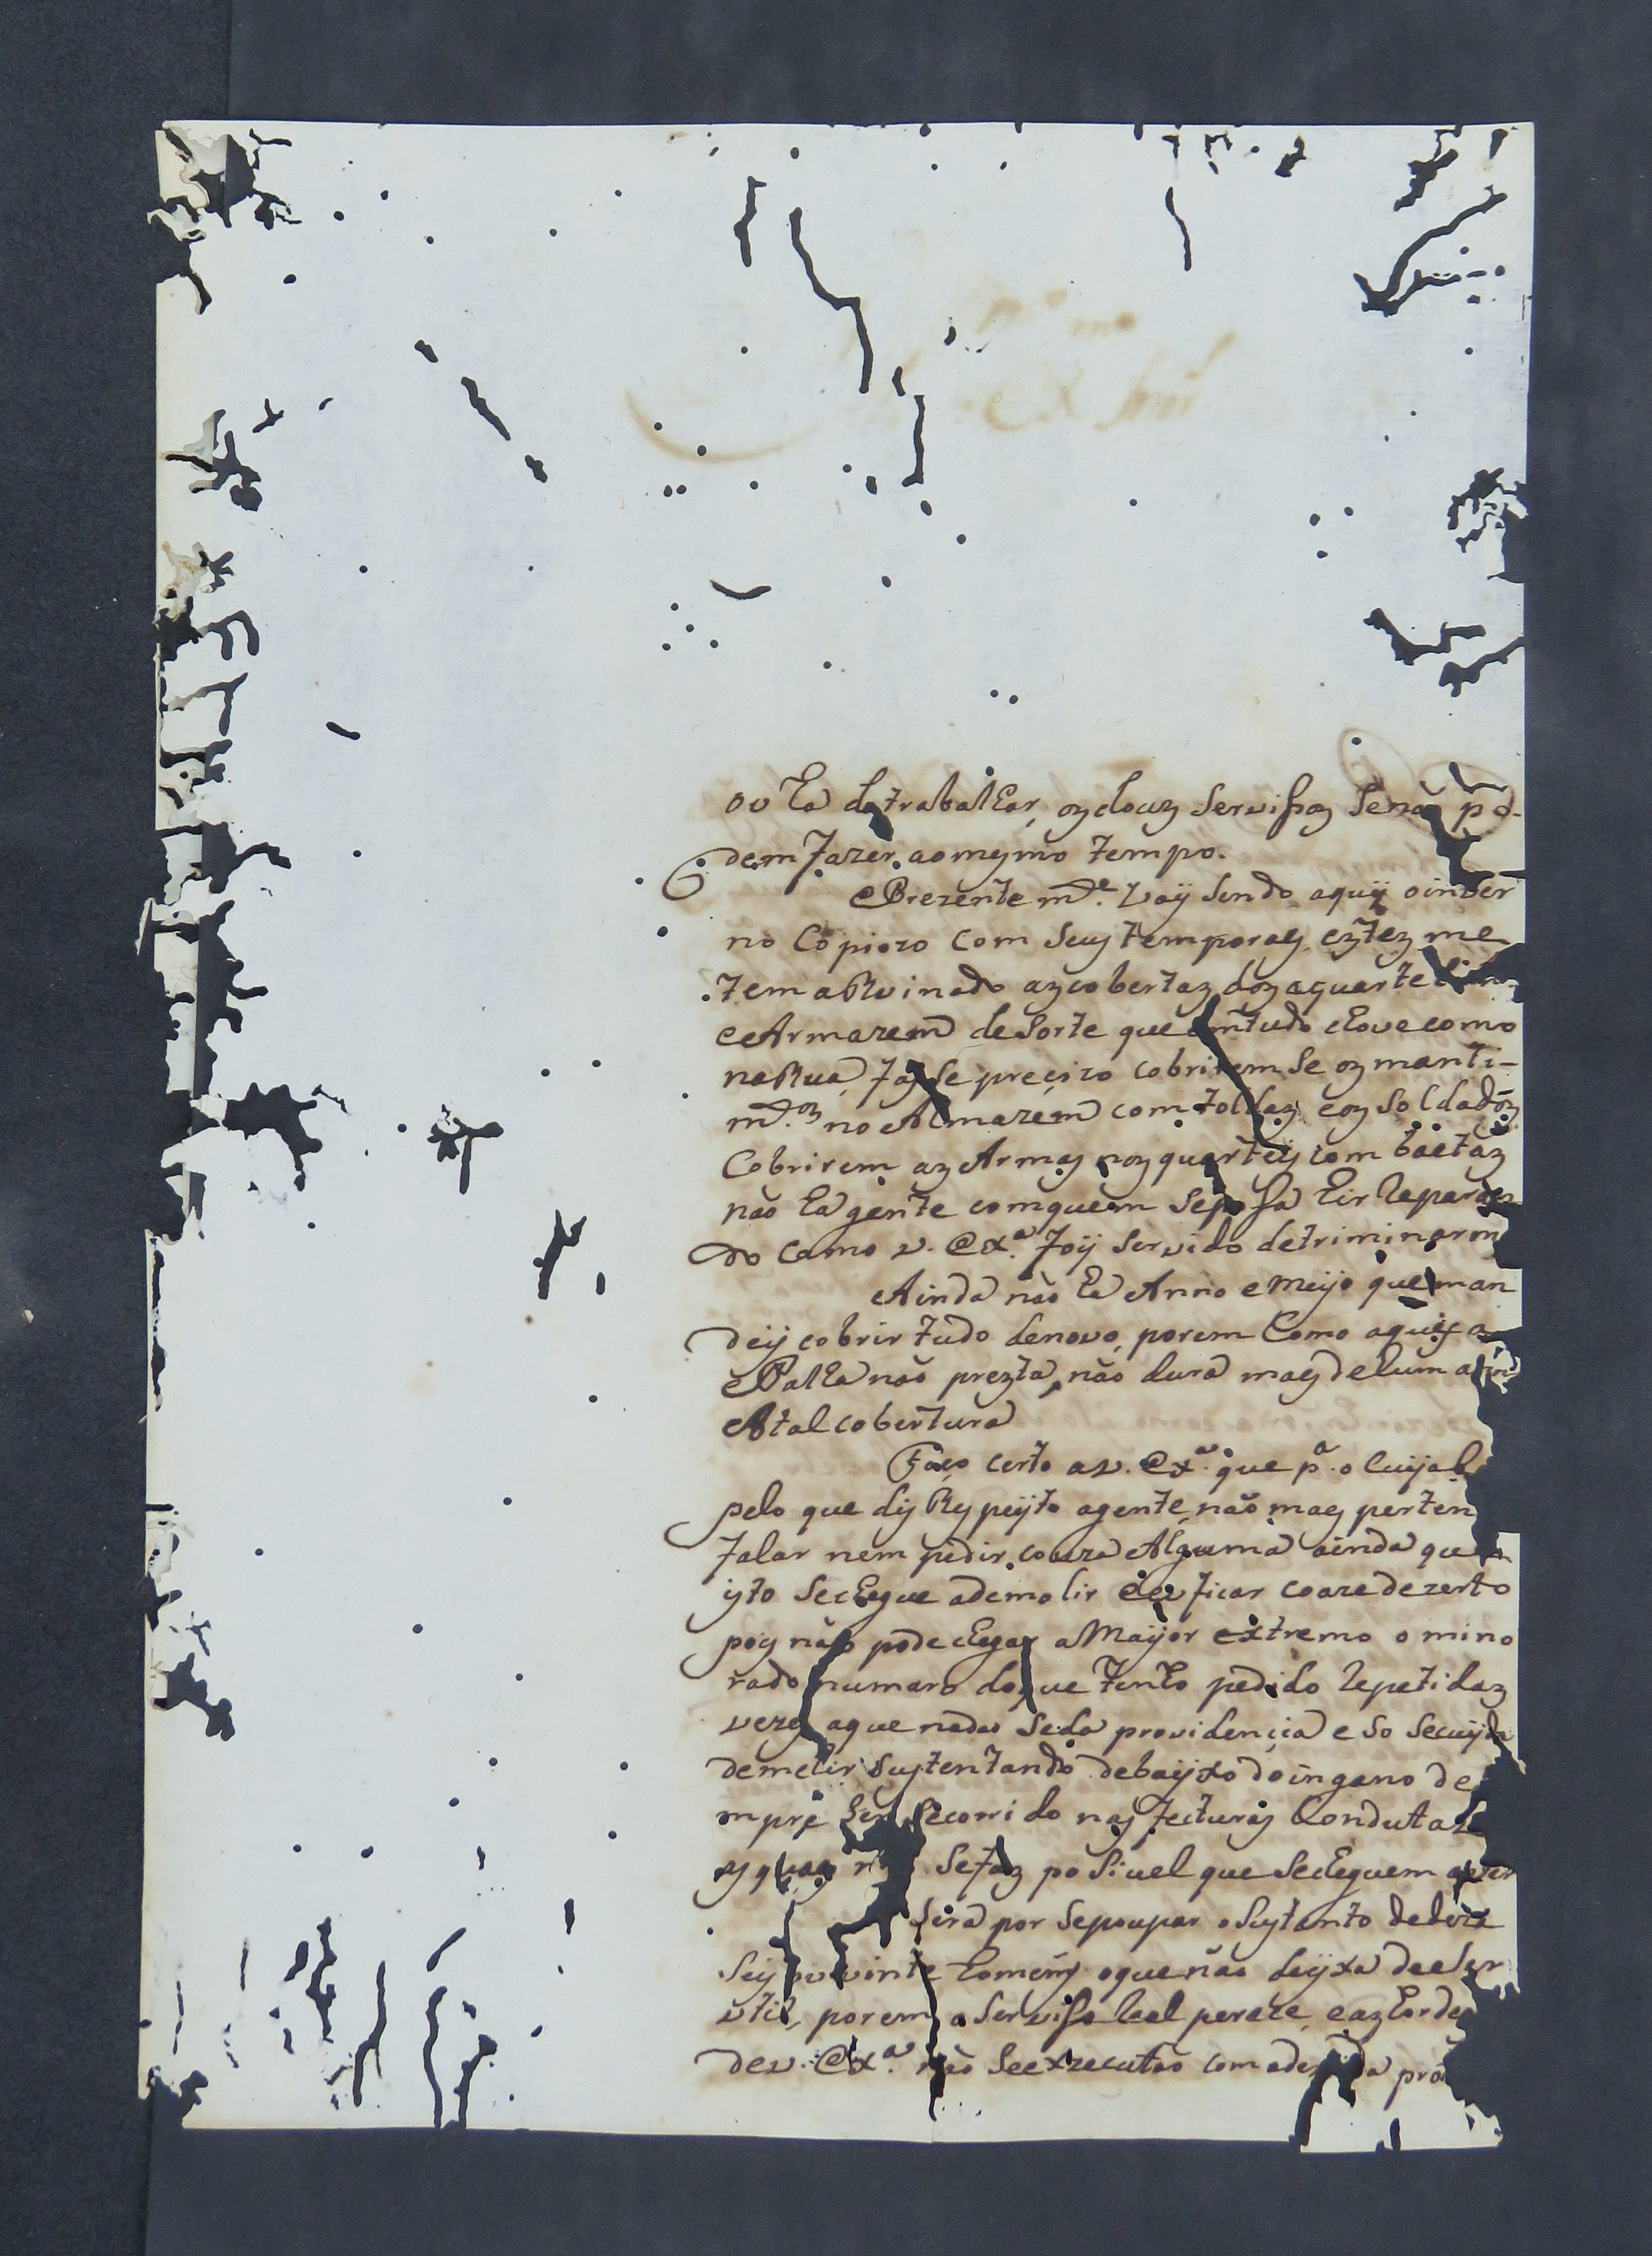 ou ha detrabalhar, os dous Servissos Senão po-
dem fazer, aomesmo tempo.
Prezentem.de vay Sendo aquy oinver
no Copiozo Com Seus temporaes, estes me
tem aRuinado as cobertas dos
eArmazem de Sorte que emtudo chove como
naRua, fas Se preçizo cobrirem Se os manti-
m.tos no Almazem com toldas, e os Soldados
Cobrirem as Armas nos quarteis com baetas
não ha gente comquem Sepossa hir Reparan
do Como V. Ex.a foy Servido detriminarm
Ainda não ha Anno e meyo que man
dey cobrir tudo denovo, porem Como aquy a
Palha não presta, não dura mais dehum
Atal cobertura
Faço certo a V. Ex.a que p.a o Cuyab
pelo que dis Respeyto agente, não mais perten
falar nem pedir, couza Alguma ainda que
isto Sechegue ademolir e a ficar coazedezerto
pois não pode chegar aMayor extremo o mino
rado numaro do que tenho pedido Repetidas
vezes aque nada Seda providençia e So Secuyda
demehir Sustentando debayxo doingano de
mpre Ser Secorrido nas fecturas Condutas
as quaes Sefas poSivel que Secheguem
Sera por Sepoupar o Sustento de
Seis ou vinte homens, oque não deyxa de Ser
util, porem o Servisso Real perece, e as hordes
de V. Ex.a não Seexzecutão com a